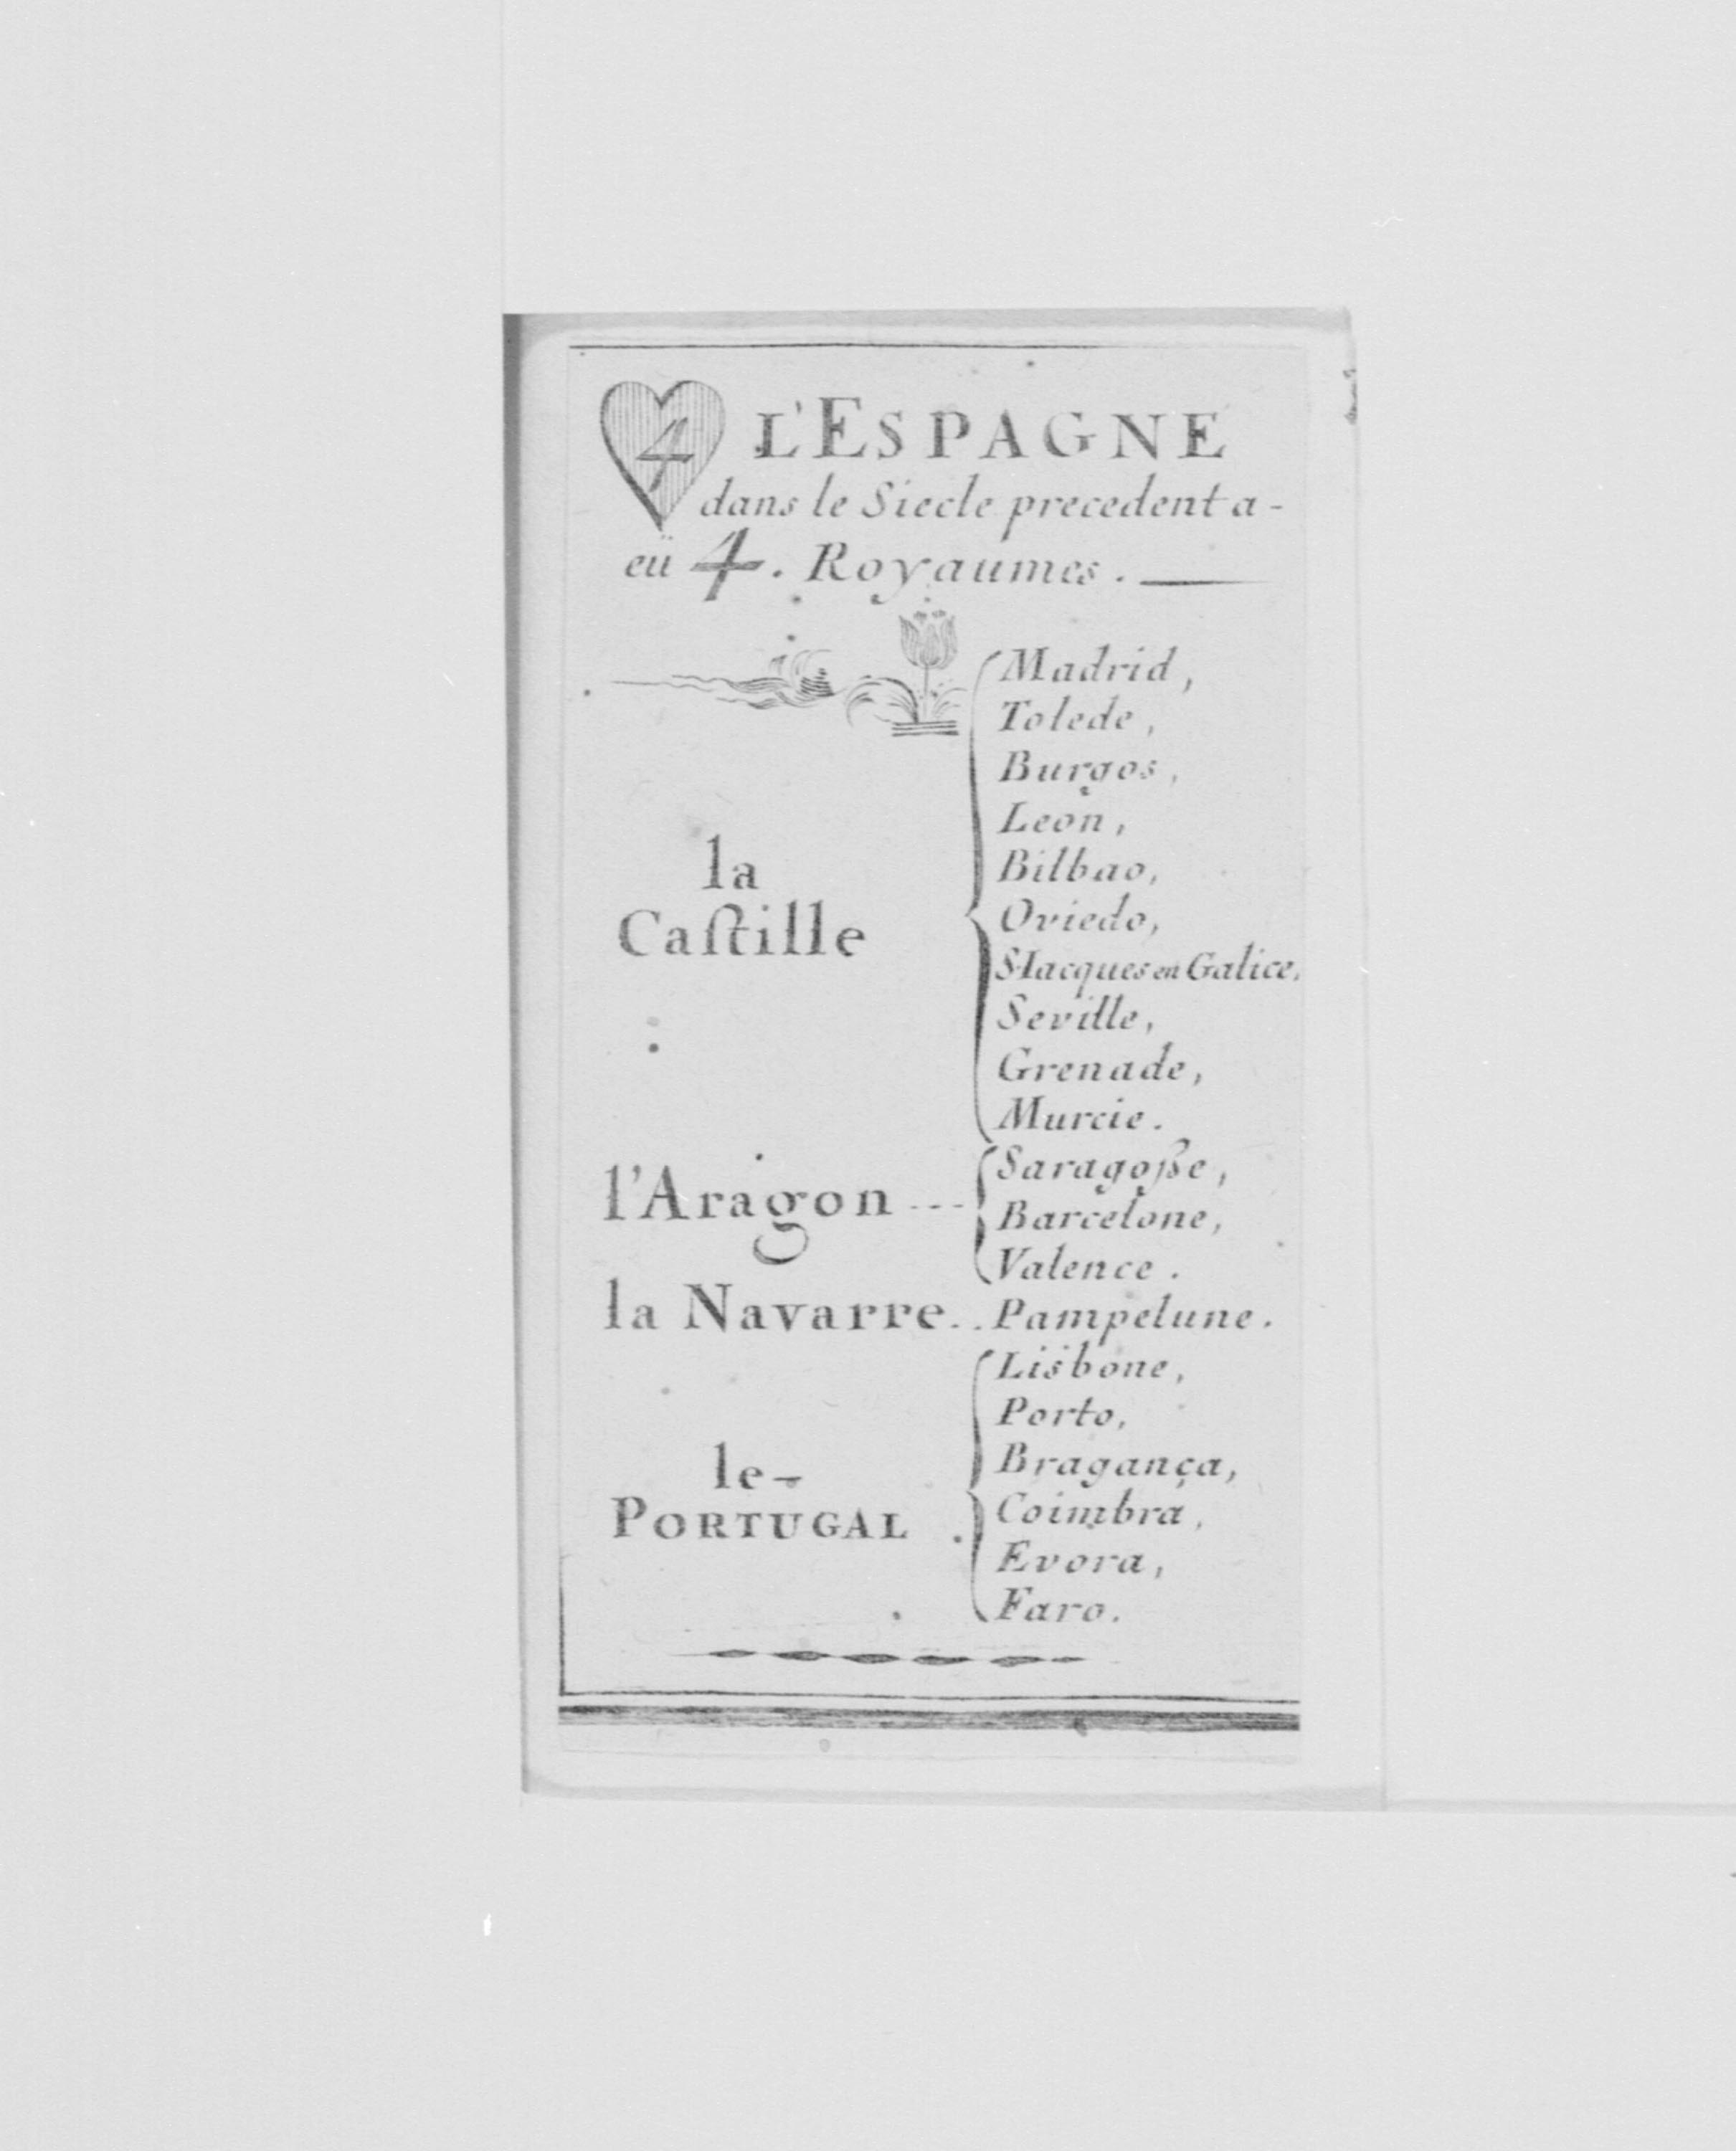 4 L'ESPAGNE
dans le Siecle precedent a-
eü 4. Royaumes.
Madrid,
Tolede,
Burgos,
Leon,
Bilbao,
la
Caſtille
Oviedo,
S.Iacques en Galice,
Seville,
Grenade,
Murcie.
l'Aragon ---
Saragoſse,
Barcelone,
Valence.
la Navarre.. Pampelune.
Lisbone,
Porto,
Bragança,
le-
PORTUGAL
Coimbra,
Evora,
Faro.